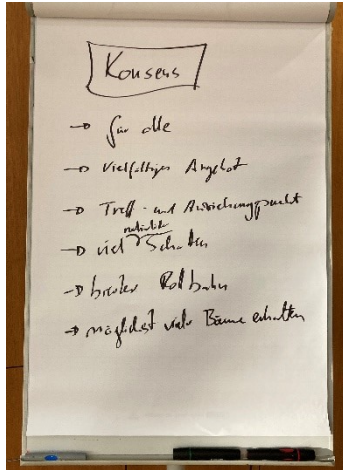 Konsens
→ für alle
→ vielfältiges Angebot
→ Treff- und Anziehungspunkt
natürlicher
→ viel Schatten
→ breite Rollbahn
→ möglichst viele Bäume erhalten